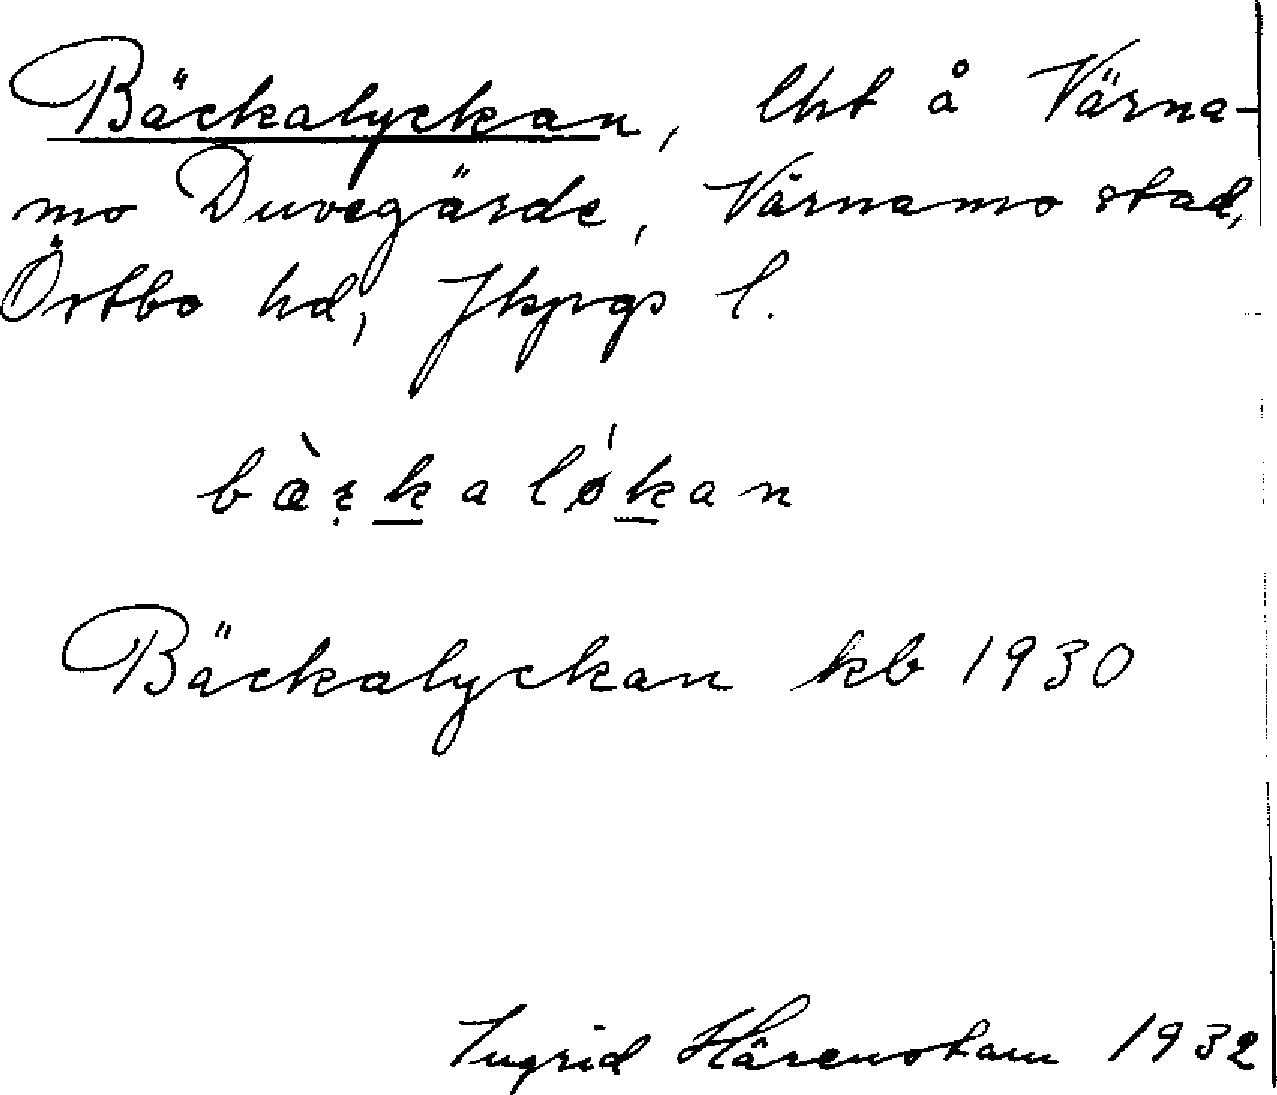 Bäckalyckan, lht å Värna-
mo Duvegärde, Värnamo stad,
Östbo hd, Jkpgs l.
Bäckalyckan kb 1930
Ingrid Härenstam 1932